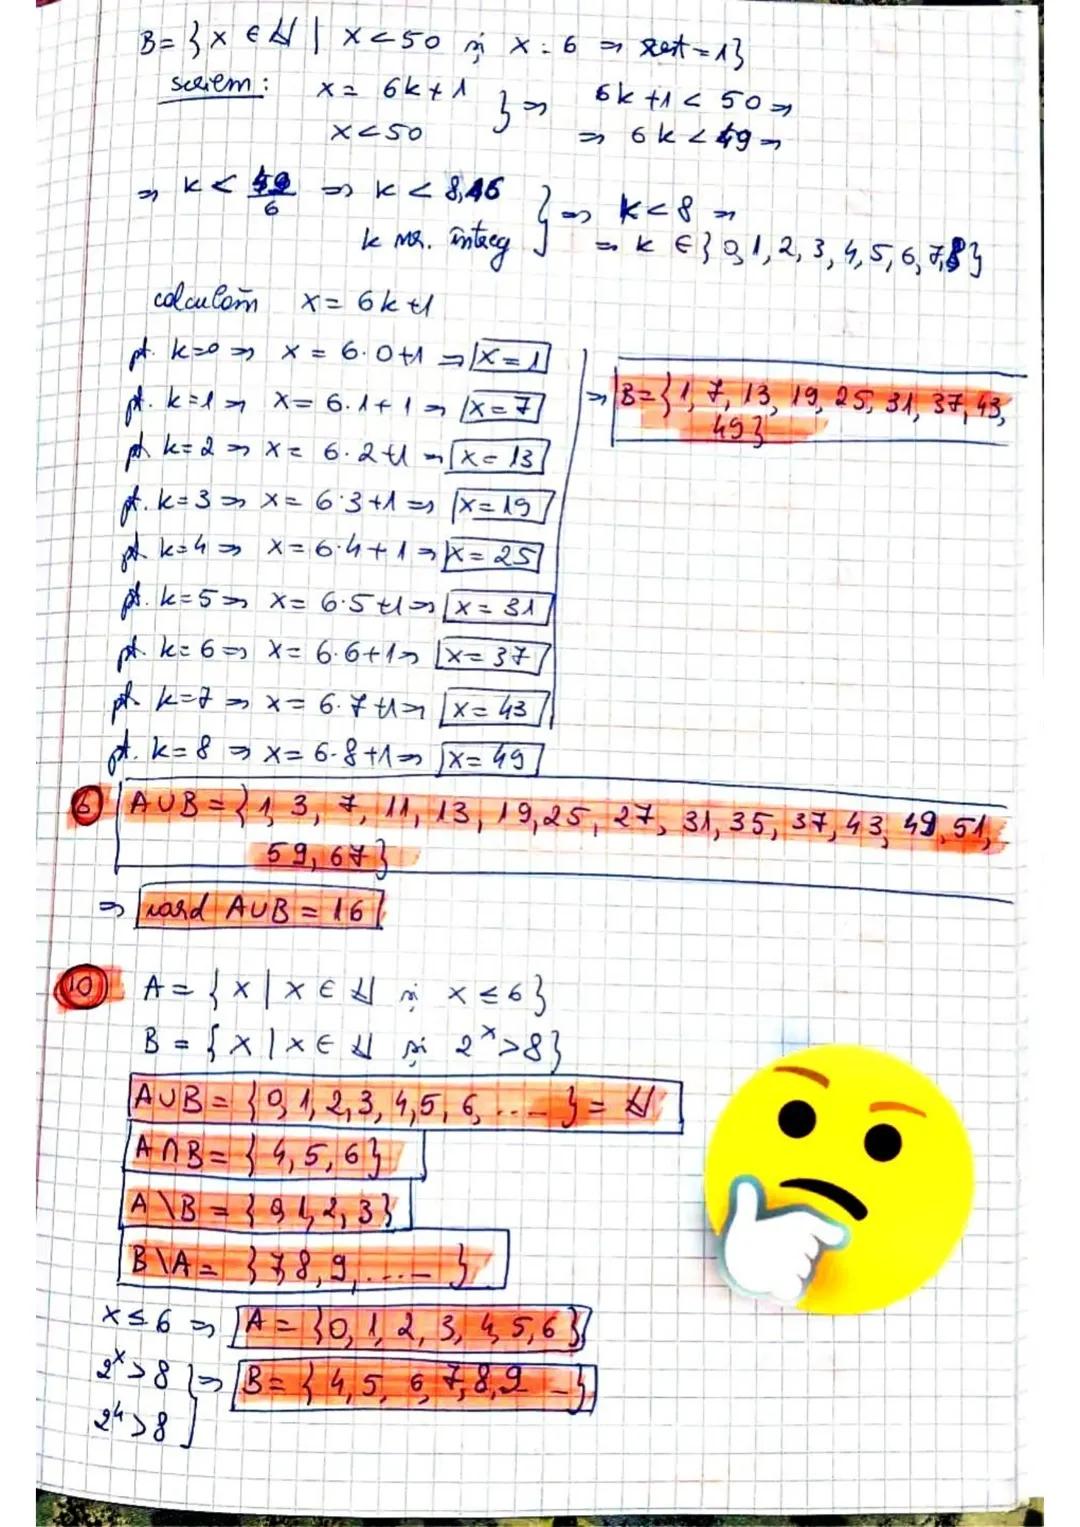 B = { x ∈ ℕ | x < 50 și x : 6 ⇒ rest = 1}
scriem: x = 6k+1 } ⇒ 6k+1 < 50 ⇒
x < 50 ⇒ 6k < 49 ⇒
⇒ k < 49/6 ⇒ k < 8,16 } ⇒ k < 8 ⇒
k nr. întreg ⇒ k ∈ {0,1,2,3,4,5,6,7,8}
calculăm x = 6k+1
pt. k=0 ⇒ x = 6·0+1 ⇒ x=1
pt. k=1 ⇒ x = 6·1+1 ⇒ x=7
⇒ B={1, 7, 13, 19, 25, 31, 37, 43,
49}
pt. k=2 ⇒ x = 6·2+1 ⇒ x=13
pt. k=3 ⇒ x = 6·3+1 ⇒ x=19
pt. k=4 ⇒ x = 6·4+1 ⇒ x=25
pt. k=5 ⇒ x = 6·5+1 ⇒ x=31
pt. k=6 ⇒ x = 6·6+1 ⇒ x=37
pt. k=7 ⇒ x = 6·7+1 ⇒ x=43
pt. k=8 ⇒ x = 6·8+1 ⇒ x=49
6 A∪B = {1, 3, 7, 11, 13, 19, 25, 27, 31, 35, 37, 43, 49, 51,
59, 67}
⇒ card A∪B = 16
10 A = { x | x ∈ ℕ și x ≤ 6}
B = { x | x ∈ ℕ și 2ˣ > 8}
A∪B = {0,1,2,3,4,5,6,....} = ℕ
A∩B = {4,5,6}
A\B = {0,1,2,3}
B\A = {7,8,9,.....}
x ≤ 6 ⇒ A = {0,1,2,3,4,5,6}
2ˣ > 8 } ⇒ B = {4,5,6,7,8,9 ...}
2⁴ > 8